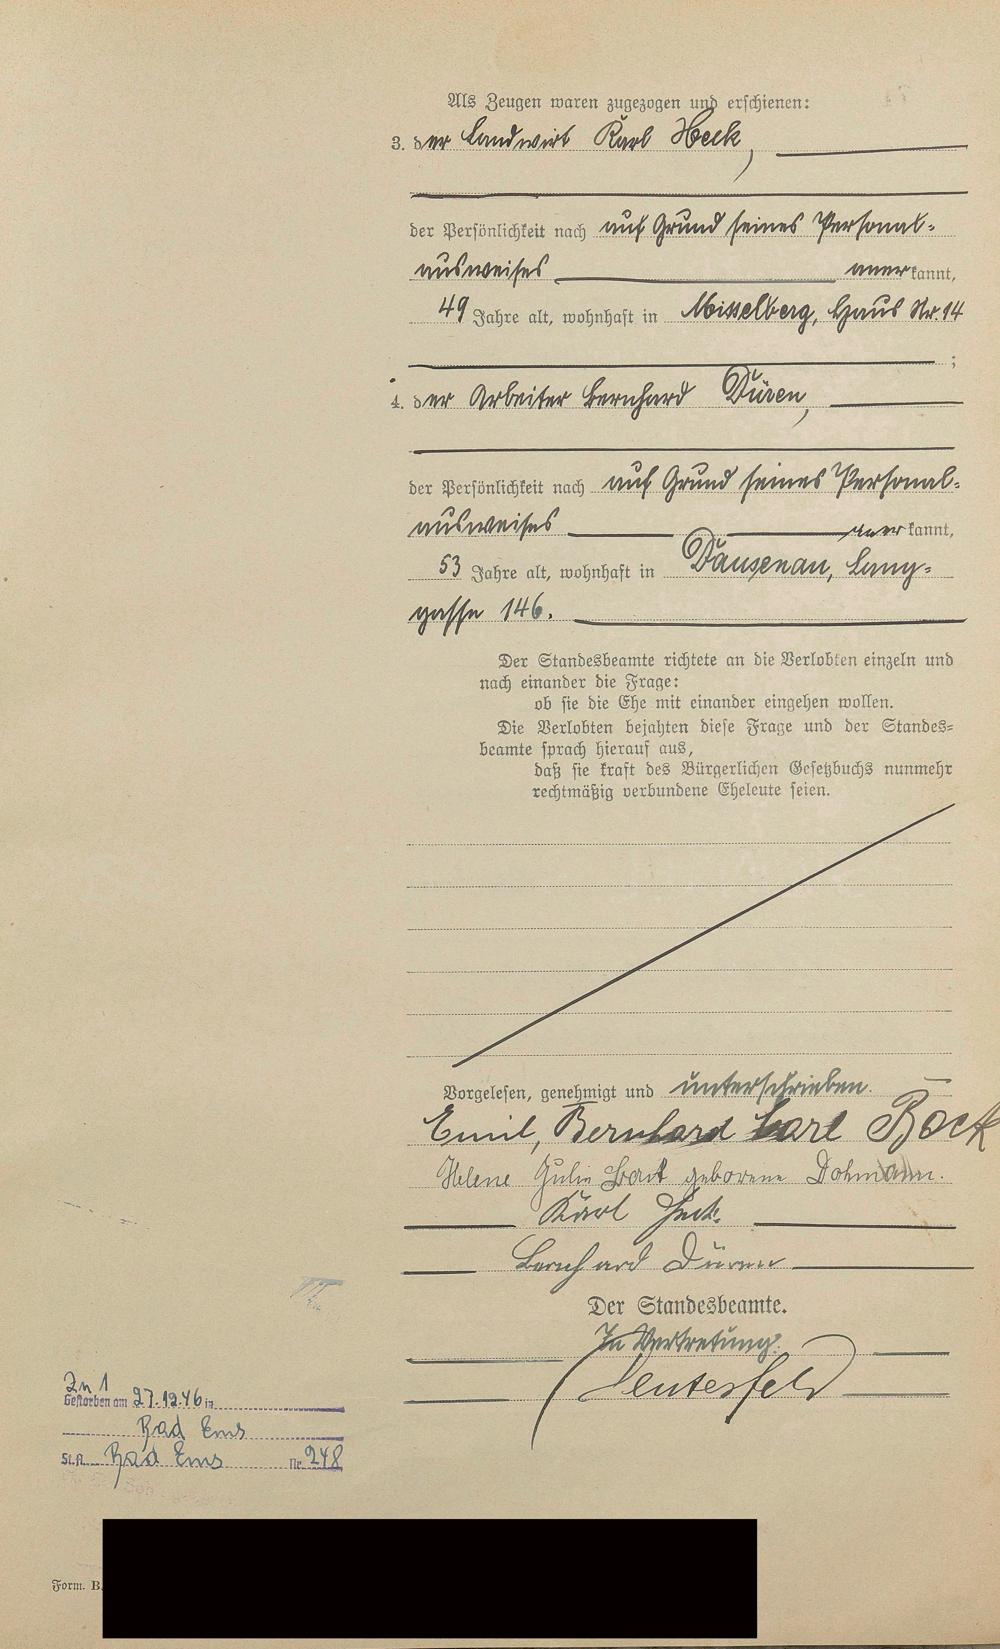 Als Zeugen waren zugezogen und erschienen:
3. der Landwirt Karl Heck,
der Persönlichkeit nach auf Grund seines Personal-
ausweises anerkannt,
49 Jahre alt, wohnhaft in Misselberg, Haus Nr. 14
;
4. der Arbeiter Bernhard Düren,
der Persönlichkeit nach auf Grund seines Personal-
ausweises anerkannt,
53 Jahre alt, wohnhaft in Dausenau, Lang-
gasse 146.
Der Standesbeamte richtete an die Verlobten einzeln und
nach einander die Frage:
ob sie die Ehe mit einander eingehen wollen.
Die Verlobten bejahten diese Frage und der Standes-
beamte sprach hierauf aus,
daß sie kraft des Bürgerlichen Gesetzbuchs nunmehr
rechtmäßig verbundene Eheleute seien.
Vorgelesen, genehmigt und unterschrieben.
Emil, Bernhard Carl Bock
Helene Julie geborene Dohmann.
Karl Heck.
Bernhard Düren
Der Standesbeamte.
In Vertretung:
Zu 1
Gestorben am 27.12.46 in
Bad Ems
St.A. Bad Ems Nr. 248
Form. B.